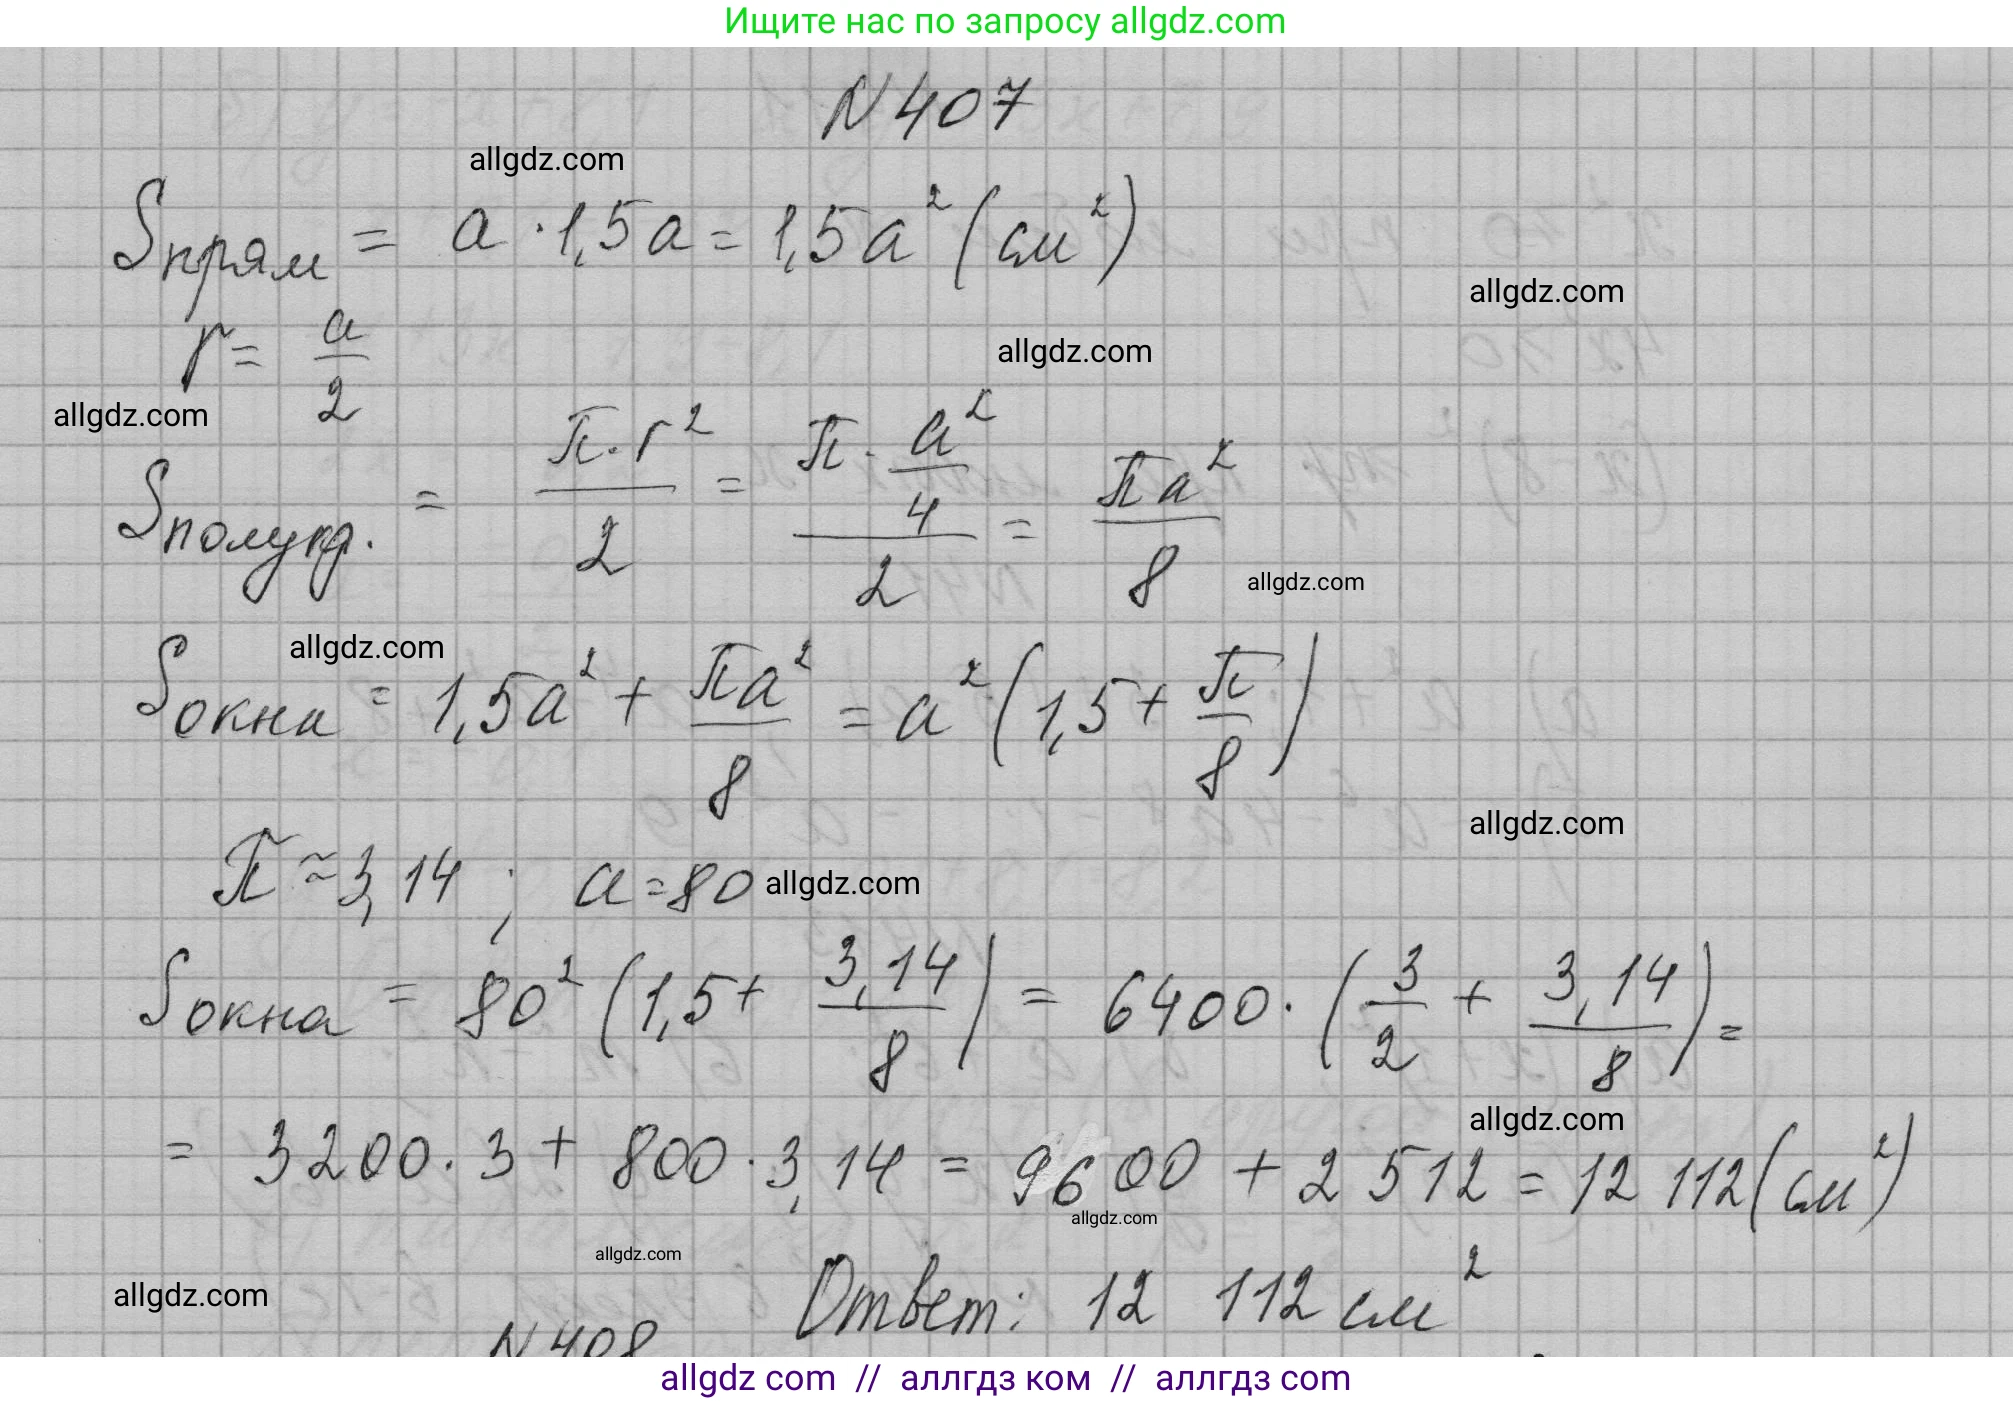 Ищите нас по запросу allgdz.com
N 407
allgdz.com
Sпрям = a · 1,5a = 1,5a² (см²)
allgdz.com
r = a/2
allgdz.com
allgdz.com
Sполукр. = π·r²/2 = (π · a²/4)/2 = πa²/8
allgdz.com
allgdz.com
Sокна = 1,5a² + πa²/8 = a² (1,5 + π/8)
allgdz.com
π ≈ 3,14 ; a = 80
allgdz.com
Sокна = 80² (1,5 + 3,14/8) = 6400 · (3/2 + 3,14/8) =
allgdz.com
= 3200 · 3 + 800 · 3,14 = 9600 + 2 512 = 12 112 (см²)
allgdz.com
allgdz.com
allgdz.com
Ответ: 12 112 см²
N 408
allgdz com // аллгдз ком // аллгдз com